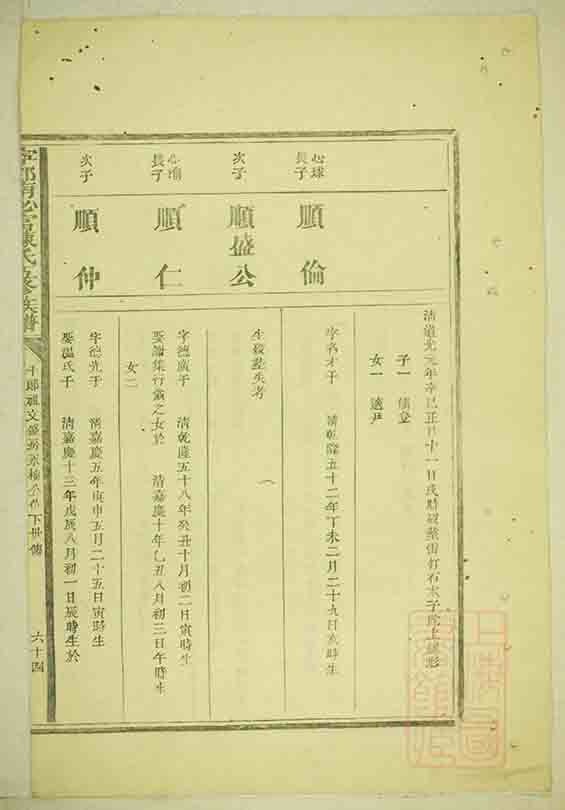 清道光元年辛巳正月十一日戌時歿葬
子一
女一 適尹
心球
長子
順倫
字名才于 清乾隆五十二年丁未二月二十九日亥時生
次子
順盛公
生歿葬失考
長子
順仁
字德廣于 清乾隆五十八年癸丑十月初二日寅時生
娶謝集行公之女於 清嘉慶十年乙丑八月初三日午時生
女二
次子
順仲
字德光于 清嘉慶五年庚申五月二十五日寅時生
娶溫氏于 清嘉慶十三年戊辰八月初一日辰時生於
陳氏 族譜
下世傳
六十四